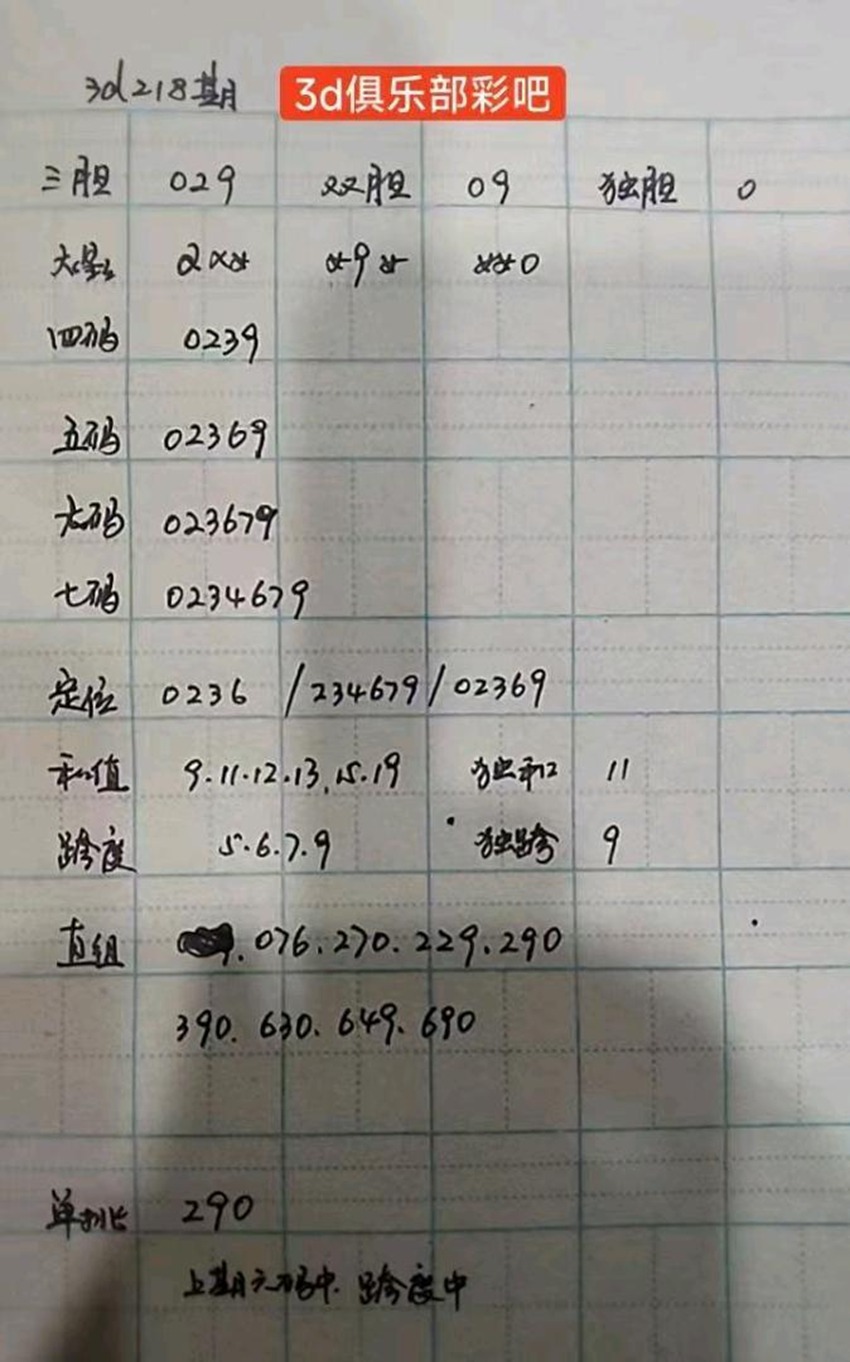 3d218期 3d俱乐部彩吧
三胆 029 双胆 09 独胆 0
大墨 2** *9* **0
四码 0239
五码 02369
六码 023679
七码 0234679
定位 0236 /234679/02369
和值 9.11.12.13.15.19 独和 11
跨度 5.6.7.9 独跨 9
直组 .076.270.229.290
390.630.649.690
单挑 290
上期六码中.跨度中